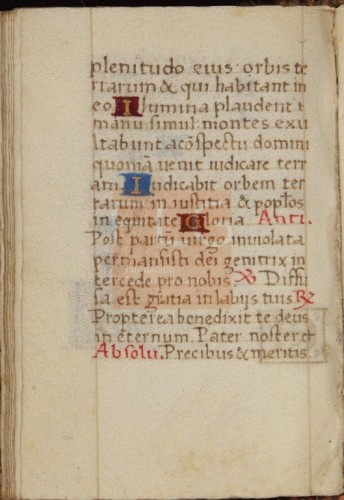 plenitudo eius: orbis te
rrarum & qui habitant in
eo Ilumina plaudent
manu simul: montes exu
ltabunt a cõspectu domini
quoniam venit iudicare terr
am Iudicabit orbem ter
rarum in iustitia & pop̃los
in equitate Gloria Anti.
Post partũ virgo inviolata
permansisti dei genitrix in
tercede pro nobis. ℣ Diffu
sa est gratia in labijs tuis ℟
Propterea benedixit te deus
in ęternum. Pater noster et
Absolu. Precibus & meritis